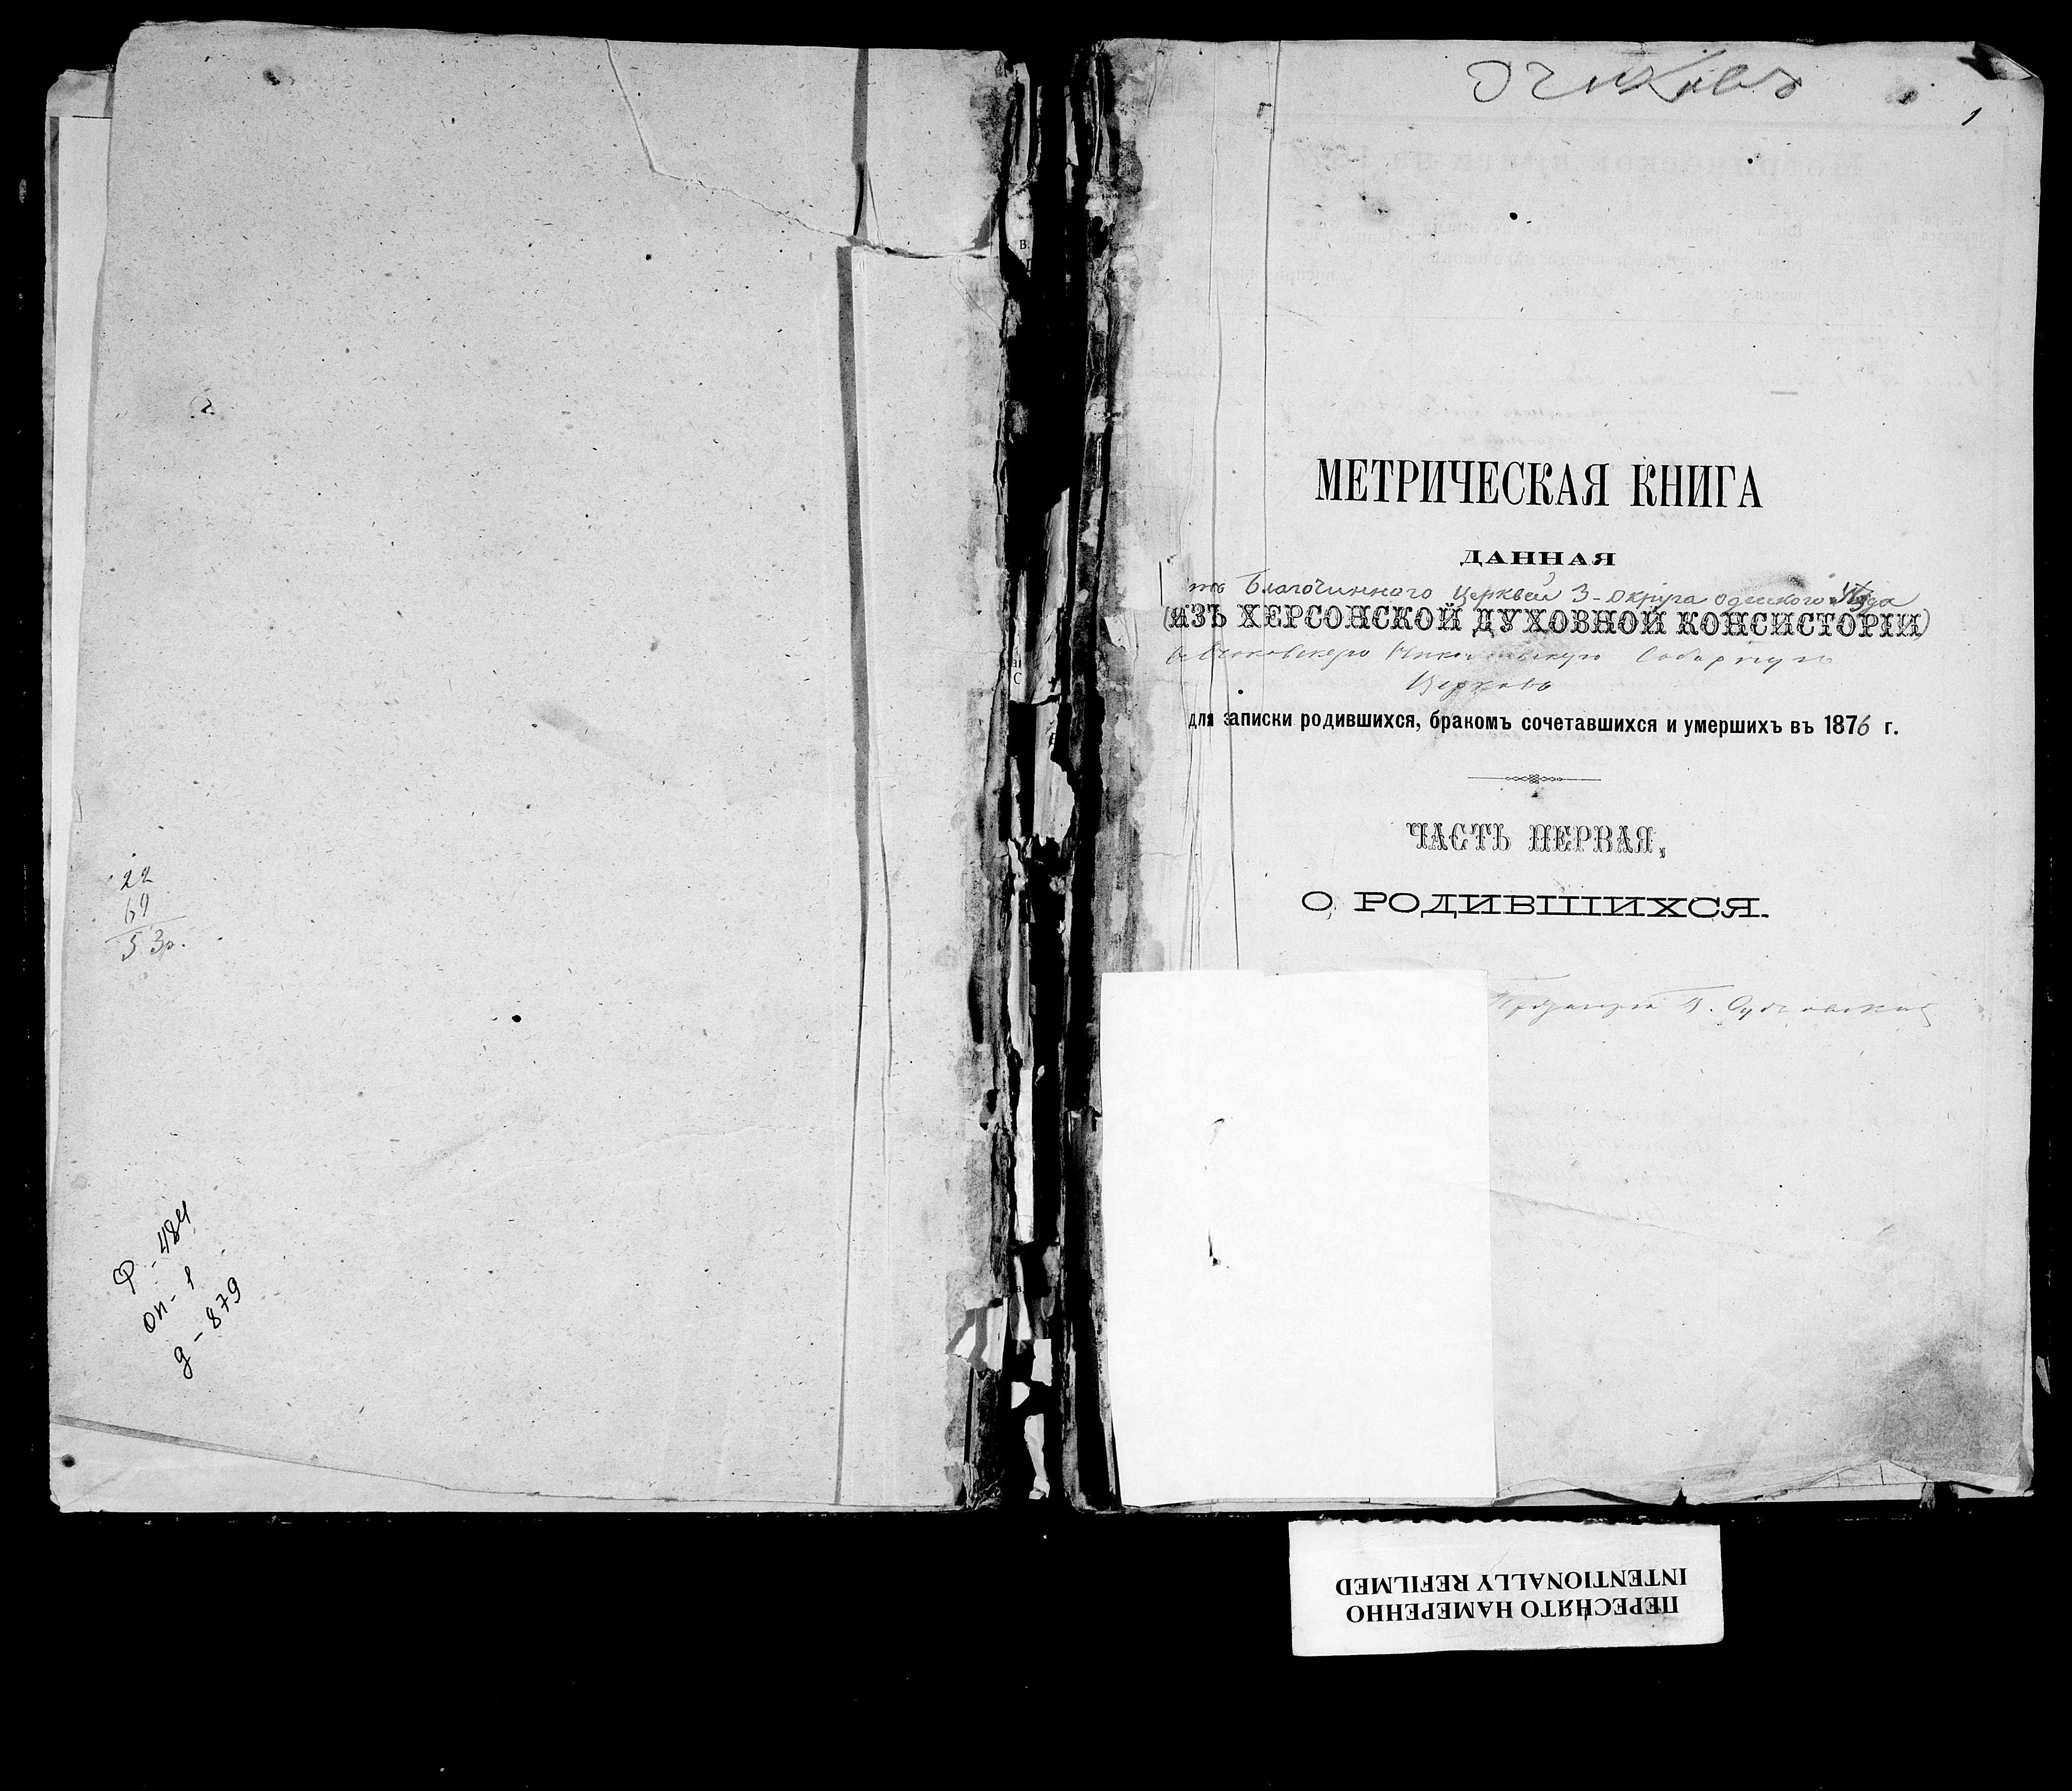 22
69
53р.
Ф-484
оп-1
д-879
Очаковъ
1
МЕТРИЧЕСКАЯ КНИГА
ДАННАЯ
Благочиннаго Церквей 3-округа одесского Уезда
(ИЗЪ ХЕРСОНСКОЙ ДУХОВНОЙ КОНСИСТОРІИ)
Соборную
Церковь
для записки родившихся, бракомъ сочетавшихся и умершихъ въ 1876 г.
ЧАСТЬ ПЕРВАЯ,
О РОДИВШИХСЯ.
ПЕРЕСНЯТО НАМЕРЕННО
INTENTIONALLY REFILMED